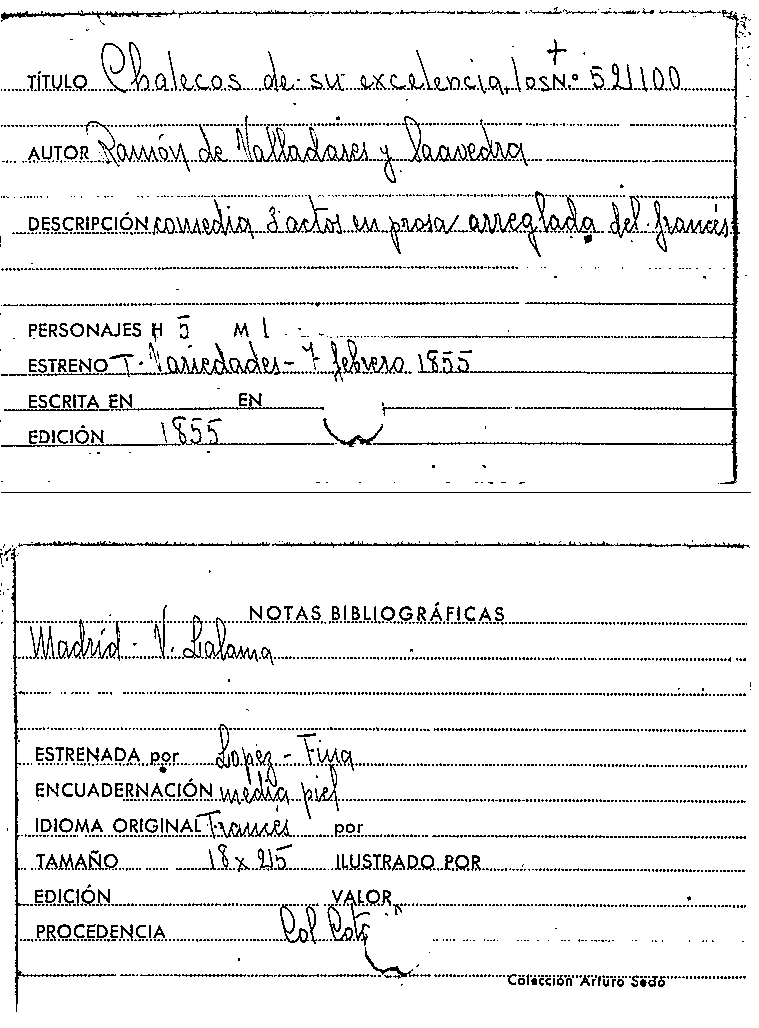 TÍTULO Chalecos de su excelencia, los N.º 521100
AUTOR Ramón de Valladares y Saavedra
DESCRIPCIÓN comedia 3 actos en prosa arreglada del francés
PERSONAJES H 5 M 1
ESTRENO T. Variedades - 7 febrero 1855
ESCRITA EN EN
EDICIÓN 1855
NOTAS BIBLIOGRÁFICAS
Madrid - V. Lalama
ESTRENADA por Lopez - Fina
ENCUADERNACIÓN media piel
IDIOMA ORIGINAL Francés por
TAMAÑO 18 x ILUSTRADO POR
EDICIÓN VALOR
PROCEDENCIA Col
Colección Arturo Sedó